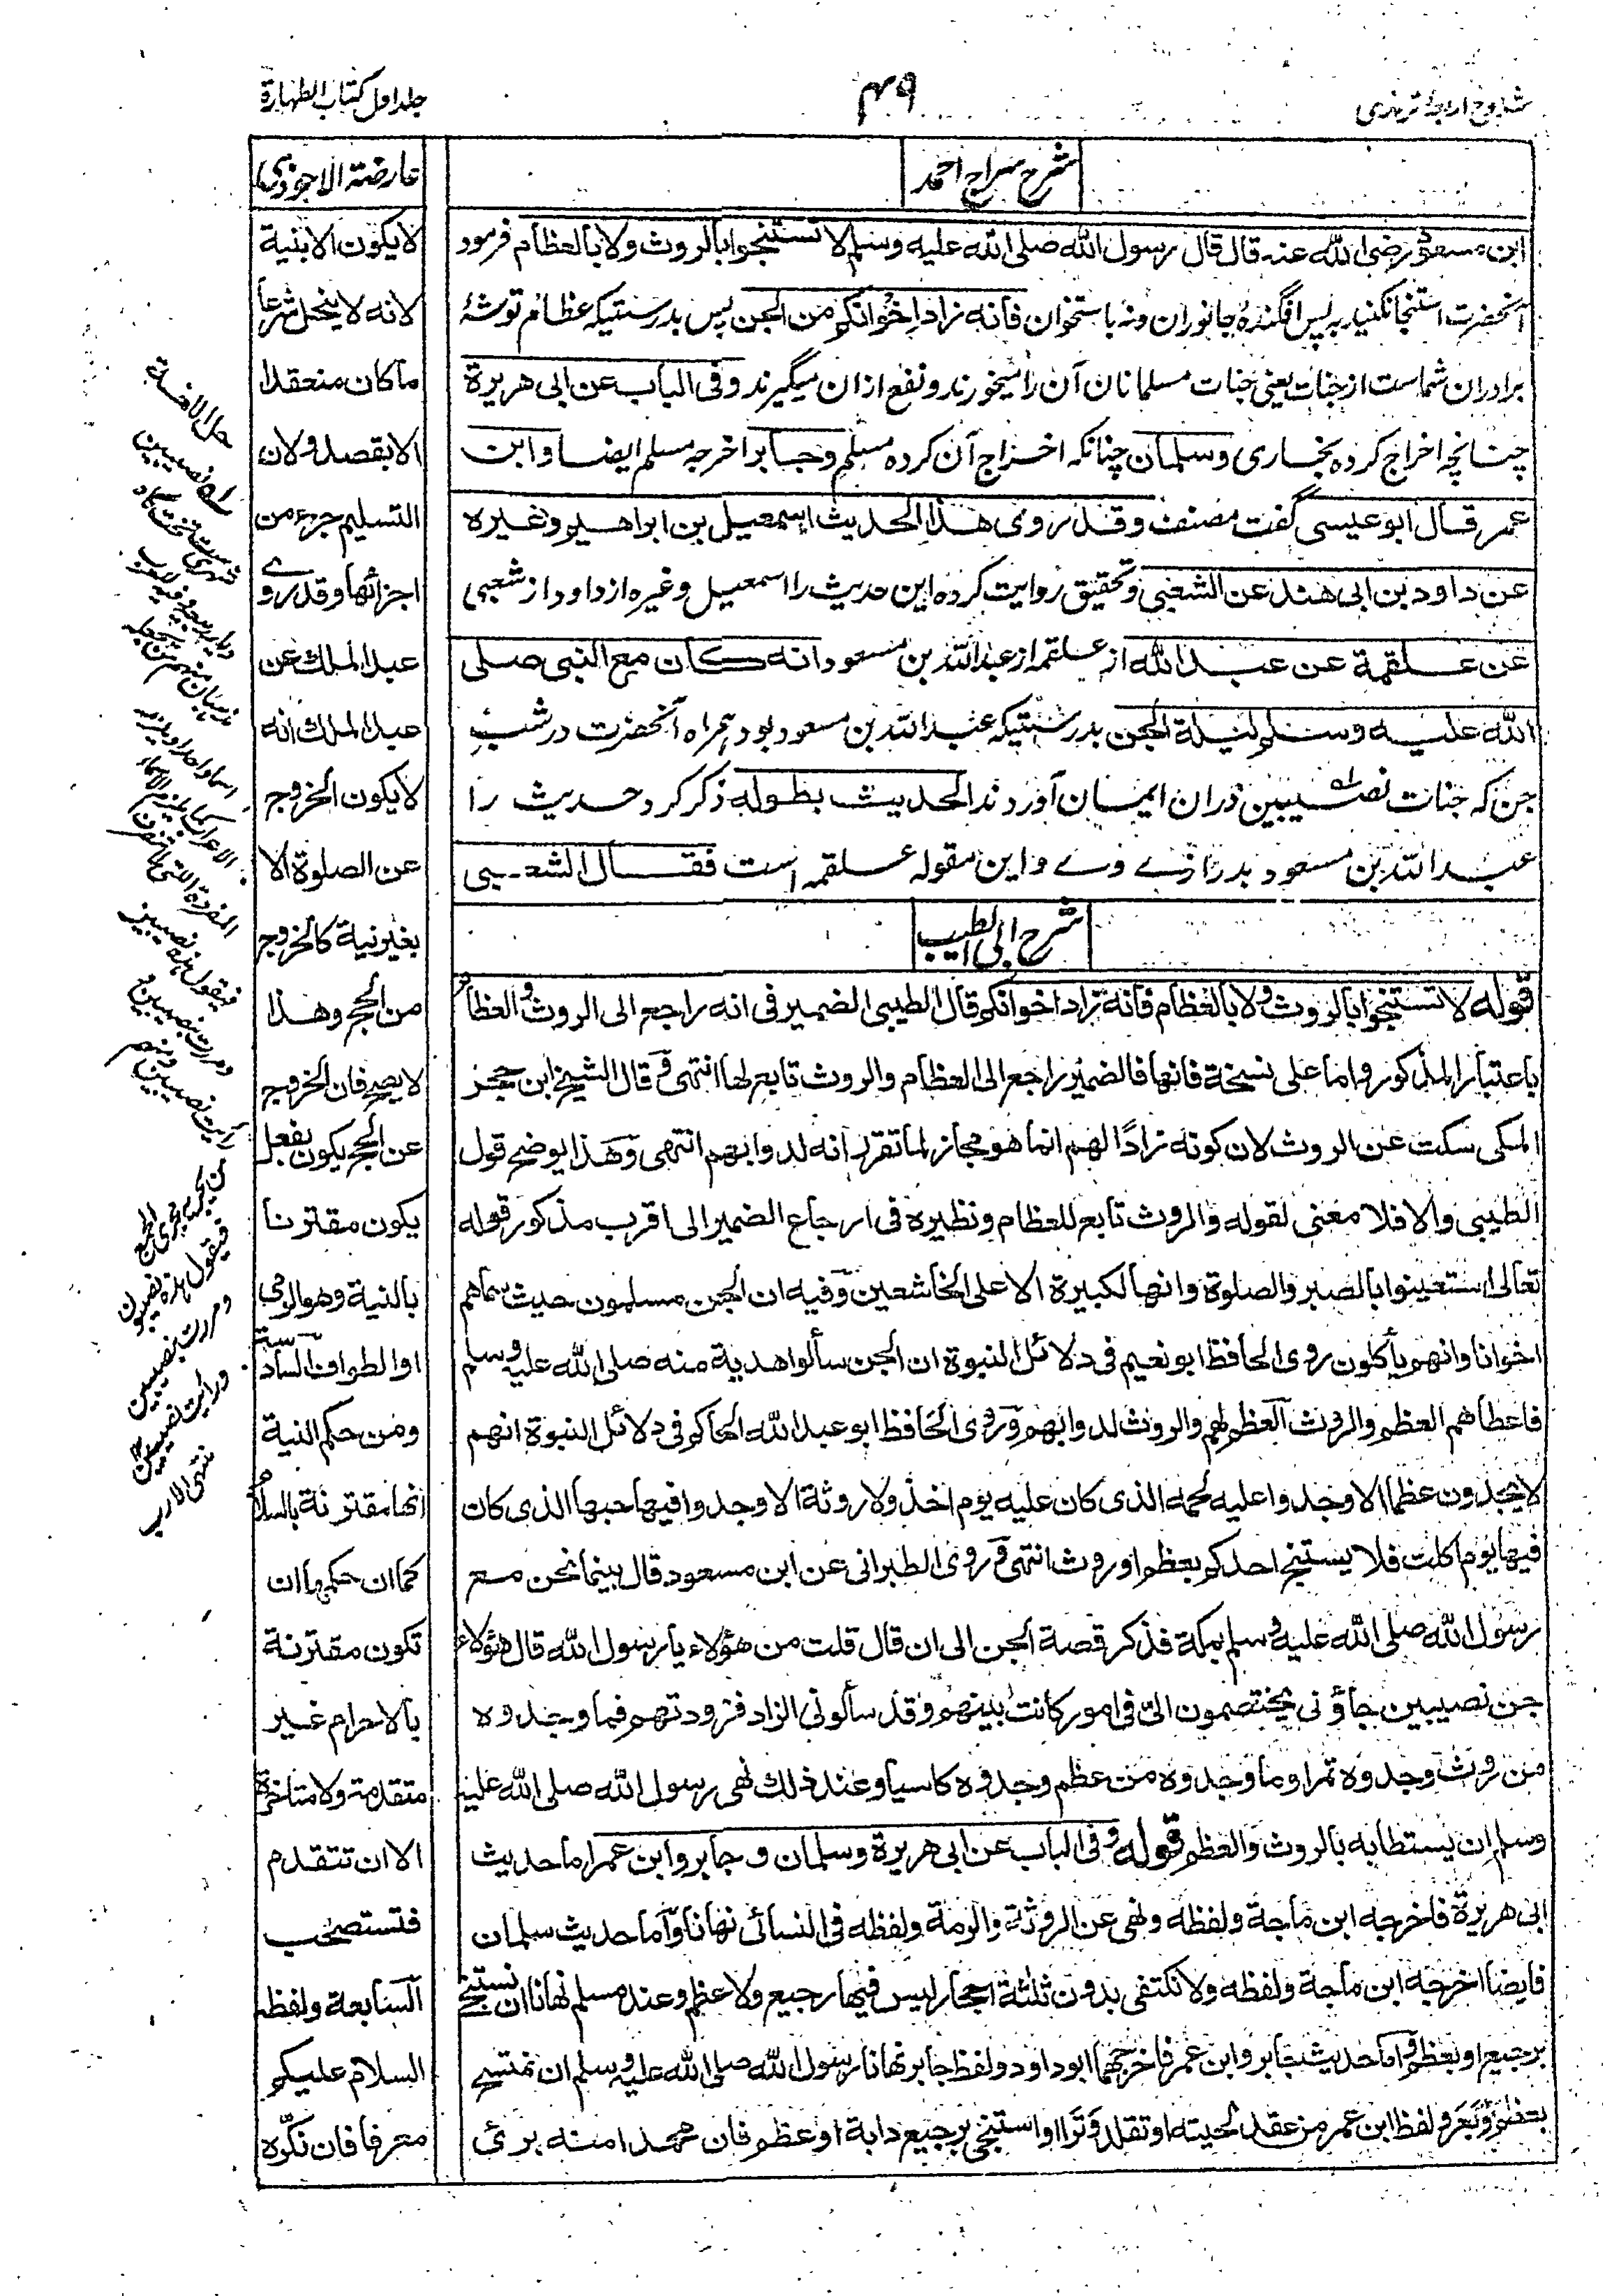 شروح اربعۂ ترمذی
۴۹
جلد اول کتاب الطهارة
شرح سراج احمد
ابن مسعود رضی الله عنه قال قال رسول الله صلی الله علیه وسلم لا تستنجوا بالروث ولا بالعظام فرمود
آنحضرت استنجا نکنید بہ پس افگندۂ جانوران ونہ باستخوان فانه زاد اخوانکم من الجن پس بدرستیکہ عظام توشۂ
برادران شماست از جنات یعنی جنات مسلمانان آن را میخورند ونفع ازان میگیرند وفی الباب عن ابی هریرة
چنانچہ اخراج کردہ بخاری وسلمان چنانکہ اخراج آن کردہ مسلم وجابر اخرجه مسلم ایضا وابن
عمر قال ابو عیسی گفت مصنف وقد روی هذا الحدیث اسمعیل بن ابراهیم وغیره
عن داود بن ابی هند عن الشعبی وتحقیق روایت کردہ این حدیث را اسمعیل وغیرہ از داود از شعبی
عن علقمة عن عبد الله از علقمہ از عبد اللہ بن مسعود انه کان مع النبی صلی
الله علیه وسلم لیلة الجن بدرستیکہ عبد اللہ بن مسعود بود ہمراہ آنحضرت در شب
جن کہ جنات نصیبین دران ایمان آوردند الحدیث بطوله ذکر کرد حدیث را
عبد اللہ بن مسعود بدرازی وے واین مقولہ علقمہ است فقال الشعبی
شرح ابی الطیب
قوله لا تستنجوا بالروث ولا بالعظام فانه زاد اخوانکم قال الطیبی الضمیر فی انه راجع الی الروث والعظام
باعتبار المذکور واما علی نسخة فانها فالضمیر راجع الی العظام والروث تابع لها انتهی وقال الشیخ ابن حجر
المکی سکت عن الروث لان کونه زادًا لهم انما هو مجاز لما تقرر انه لدوابهم انتهی وهذا یوضح قول
الطیبی والا فلا معنی لقوله والروث تابع للعظام ونظیره فی ارجاع الضمیر الی اقرب مذکور قوله
تعالی استعینوا بالصبر والصلوة وانها لکبیرة الا علی الخاشعین وفیه ان الجن مسلمون حیث سماهم
اخوانا وانهم یأکلون روی الحافظ ابو نعیم فی دلائل النبوة ان الجن سألوا هدیة منه صلی الله علیه وسلم
فاعطاهم العظم والروث العظم لهم والروث لدوابهم وروی الحافظ ابو عبد الله الحاکم فی دلائل النبوة انهم
لا یجدون عظما الا وجدوا علیه لحمه الذی کان علیه یوم اخذ ولا روثة الا وجدوا فیها حبها الذی کان
فیها یوم اکلت فلا یستنج احدکم بعظم او روث انتهی وروی الطبرانی عن ابن مسعود قال بینما نحن مع
رسول الله صلی الله علیه وسلم بمکة فذکر قصة الجن الی ان قال قلت من هؤلاء یا رسول الله قال هؤلاء
جن نصیبین جاؤنی یختصمون الیّ فی امور کانت بینهم وقد سألونی الزاد فزودتهم فما وجدوه
من روث وجدوه تمرا وما وجدوه من عظم وجدوه کاسیا وعند ذلك نهی رسول الله صلی الله علیه
وسلم ان یستطاب به بالروث والعظم قوله وفی الباب عن ابی هریرة وسلمان وجابر وابن عمر اما حدیث
ابی هریرة فاخرجه ابن ماجة ولفظه ونهی عن الروثة والرمة ولفظه فی النسائی نهانا واما حدیث سلمان
فایضا اخرجه ابن ماجة ولفظه ولا نکتفی بدون ثلثة احجار لیس فیها رجیع ولا عظم وعند مسلم نهانا ان نستنجی
برجیع او بعظم واما حدیث جابر وابن عمر فاخرجهما ابو داود ولفظ جابر نهانا رسول الله صلی الله علیه وسلم ان نتمسح
بعظم وبعر ولفظ ابن عمر من عقد لحیته او تقلد وترا او استنجی برجیع دابة او عظم فان محمدا منه برئ
عارضة الاحوذی
لا یکون الا بنیة
لانه لا ینحل شرعا
ما کان منعقدا
الا بقصد ولان
التسلیم جزء من
اجزائها وقد روے
عبد الملك عن
عبد الملك انه
لا یکون الخروج
عن الصلوة الا
بغیر نیة کالخروج
من الحج وهذا
لا یصح فان الخروج
عن الحج یکون بفعل
یکون مقترنا
بالنیة وهو الرمی
او الطواف السادسة
ومن حکم النیة
انها مقترنة بالسلام
کما ان حکمها ان
تکون مقترنة
بالاحرام غیر
متقدمة ولا متاخرة
الا ان تتقدم
فتستصحب
السابعة ولفظه
السلام علیکم
معرفا فان نکّره
فیقول هذه نصیبین
ومررت بنصیبین
ورأیت نصیبین
فیقول هذه نصیبون
ومررت بنصیبین
ورأیت نصیبین
منتهی الارب